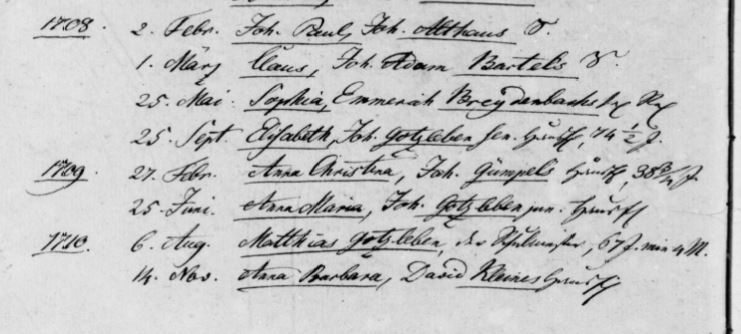 1708. 2. Febr. Joh. Paul, Joh. Althaus S.
1. März Claus, Joh. Adam Bartels S.
25. Mai. Sophia, Emmerich Breydenbachs
25. Sept. Elisabeth, Joh. Gotzleben sen. Hausfr, 74 1/2 J.
1709. 27. Febr. Anna Christina, Joh. Gümpels Hausfr, 38 3/4 J.
25. Juni. Anna Maria, Joh. Gotzleben jun. Hausfr
1710. 6. Aug. Matthias Gotzleben, der Schulmeister, 67 J. min 4 M.
14. Nov. Anna Barbara, David Kleines Hausfr